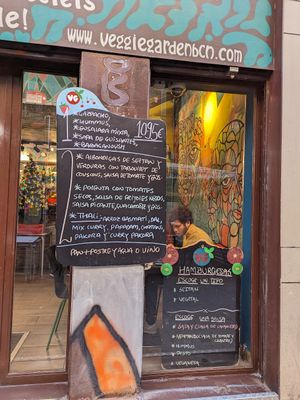 de!
www.veggiegardenbcn.com
VG
*GAZPACHO
*HUMMUS
*ENSALADA MIXTA
*SOPA DE GUISANTES
*BABAGANOUSH
10'95€
*ALBONDIGAS DE SEITAN Y
VERDURAS CON TABOULEH DE
COUSCOUS, SALSA DE TOMATE Y
*POLENTA CON TOMATES
SECOS, SALSA DE FRIJOLES NEGROS,
SALSA PICANTE, GUACAMOLE Y
*THALI: ARROZ BASMATI, DAL,
MIX CURRY, PAPADAM,
PAKORA Y CURRY
PAN + POSTRE Y AGUA O VINO
HAMBURGUESAS
ESCOGE UN TIPO
SEITAN
VEGETAL
ESCOGE UNA SALSA
HUMMUS
PESTO
VEGANESA